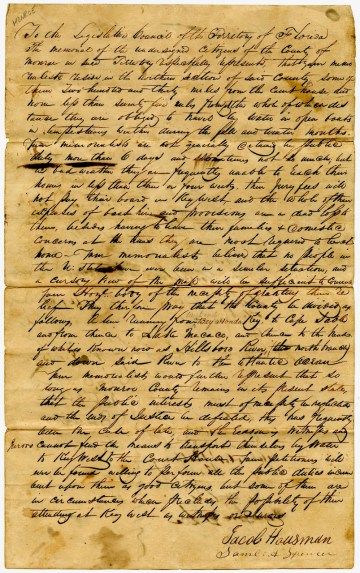 To the Legislative Council of the Territory of Florida
The memorial of the undersigned Citizens of the County of
Monroe in said Territory respectfully represents, that your memo-
rialists reside in the Northern section of said County some of
them two hundred and thirty miles from the Court house and
none less than seventy five miles, the whole of which dis
tance they are obliged to travel by water in open boats
in tempestuous weather during the fall and winter months.
Your memorialists are not generally detained to public
duty more than 6 days and sometimes not so much, but
in bad weather they are frequently unable to reach their
homes in less than three or four weeks, their jury fees will
not pay their board in Key West and the whole of their
expenses of boat hire and provisions are a dead loss to
them, besides having to leave their families & domestic
concerns at the time they are most required to be at
home. Your memorialists believe that no people in
the U. States are in a similar situation, and
a cursory view of the map will be sufficient to convince
your Honble body of the necessity of granting them re
lief. They therefore pray that the County be divided as
follows. A line running from Key to Cape Sable
and from thence to Lake Macaco, and thence to the head
of what known now as Hillsboro River,
and down said river to the Atlantic Ocean
Your memorialists would further represent that so
long as Monroe County remains in its present state
that the public interests must of necessity be neglected
and the ends of Justice be defeated. This has frequently
been the case of late, and the reason is Witnesses and
Jurors cannot find the means to transport themselves by water
to Key West to the Court House. Your petitioners will
ever be found willing to perform all the public duties incum
bent upon them as good citizens but some of them are
in circumstances which preclude the possibility of their
attending at Key West as witnesses or Jurors
Jacob Housman
Samuel Spencer